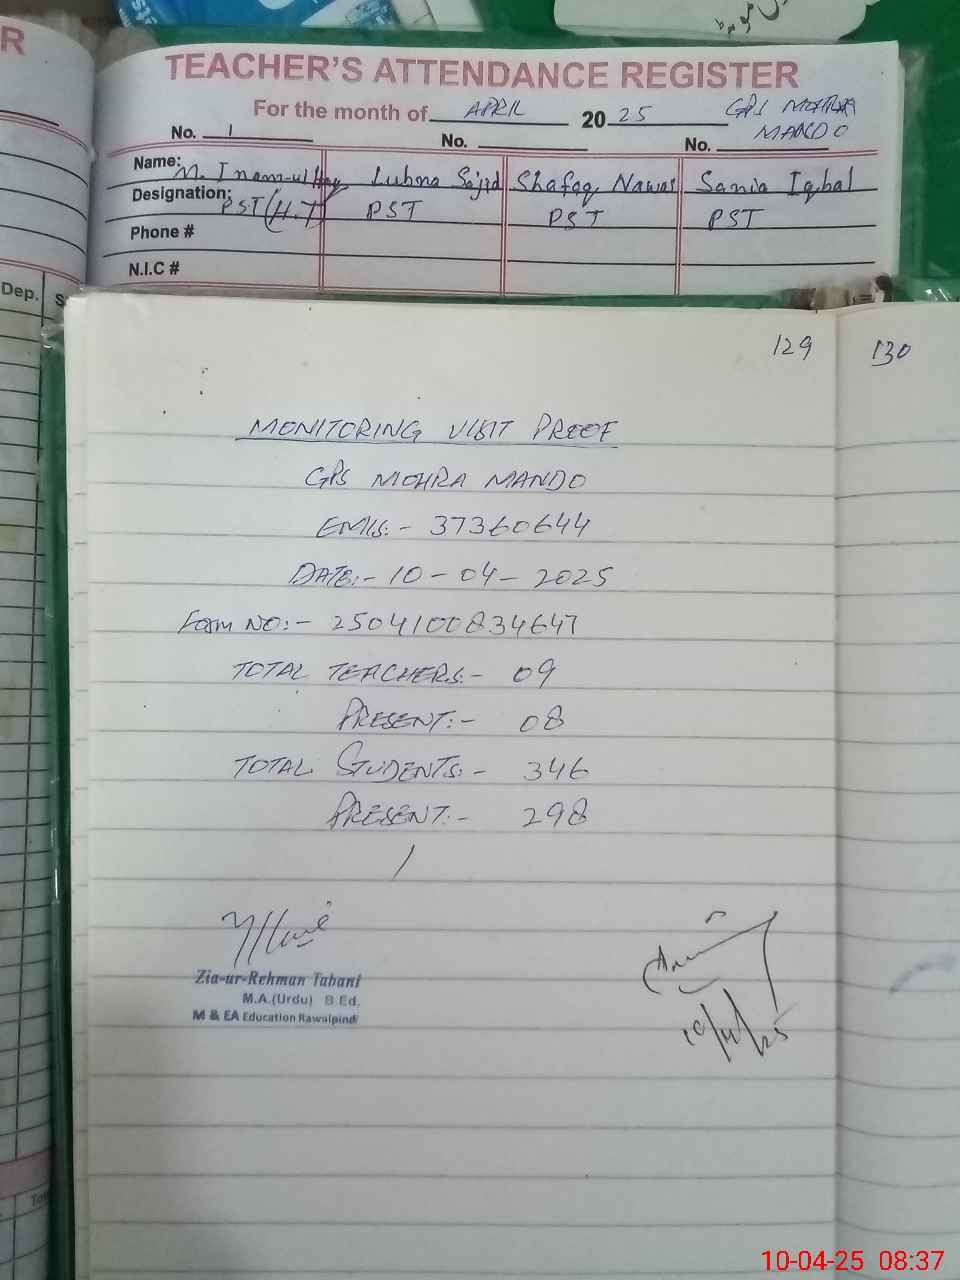 R
TEACHER'S ATTENDANCE REGISTER
For the month of APRIL 2025 GPS MOHRA MANDO
No. 1 No. No.
Name: M. Inam-ul-Haq Lubna Sajid Shafaq Nawas Sania Iqbal
Designation: PST (H.T) PST PST PST
Phone #
N.I.C #
Dep.
129 130
MONITORING VISIT PROOF
GPS MOHRA MANDO
EMIS:- 37360644
DATE:- 10-04-2025
Form NO:- 2504100834647
TOTAL TEACHERS:- 09
PRESENT:- 08
TOTAL STUDENTS:- 346
PRESENT:- 298
Zia-ur-Rehman Tabani
M.A.(Urdu) B.Ed.
M & EA Education Rawalpindi
10/4/25
10-04-25 08:37